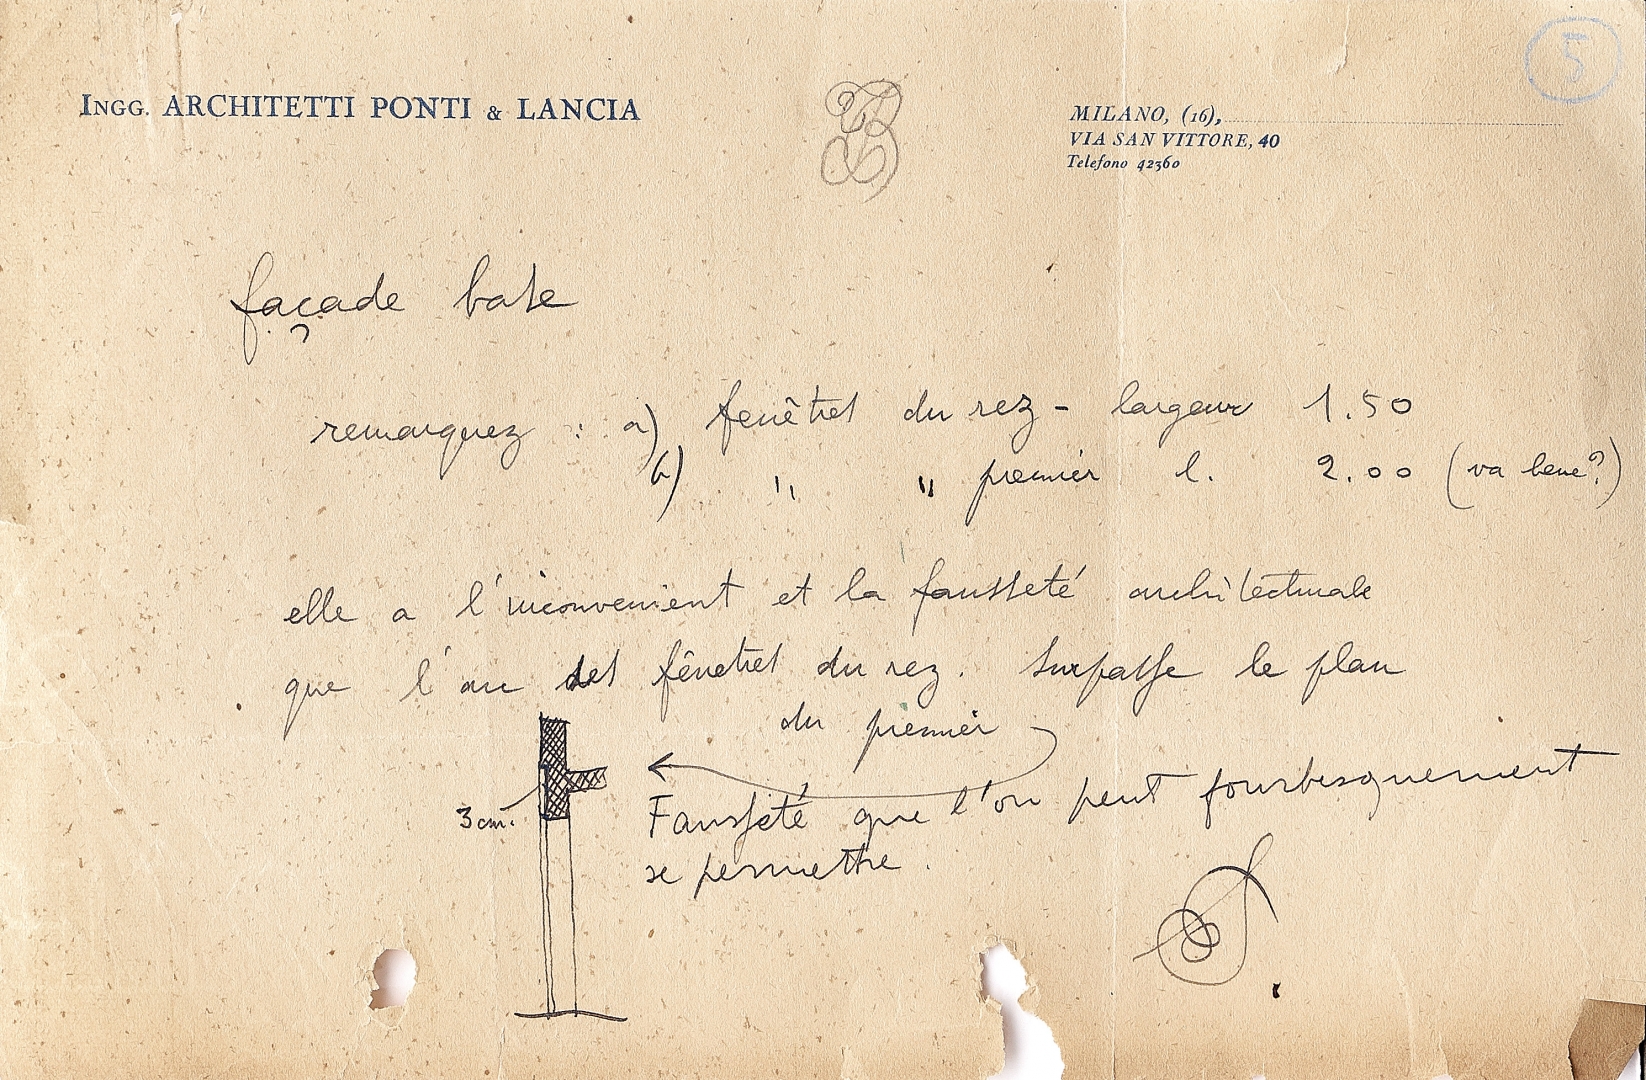 5
INGG. ARCHITETTI PONTI & LANCIA
MILANO, (16),
VIA SAN VITTORE, 40
Telefono 42360
façade
remarquez : a) fenêtres du rez - largeur 1.50
b) " " premier l. 2.00 (va bene?)
elle a l'inconvenient et la fausseté architecturale
que l'arc des fênetres du rez. surpasse le plan
du premier
3 cm.
Fausseté que l'on peut fourbesquement
se permettre.